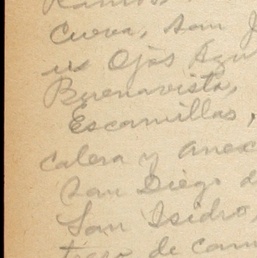 Ramos,
Cueva, San J
us Ojos Azu
Buenavista,
Escamillas,
calera y anex
San Diego d
San Isidro,
tiero de cam